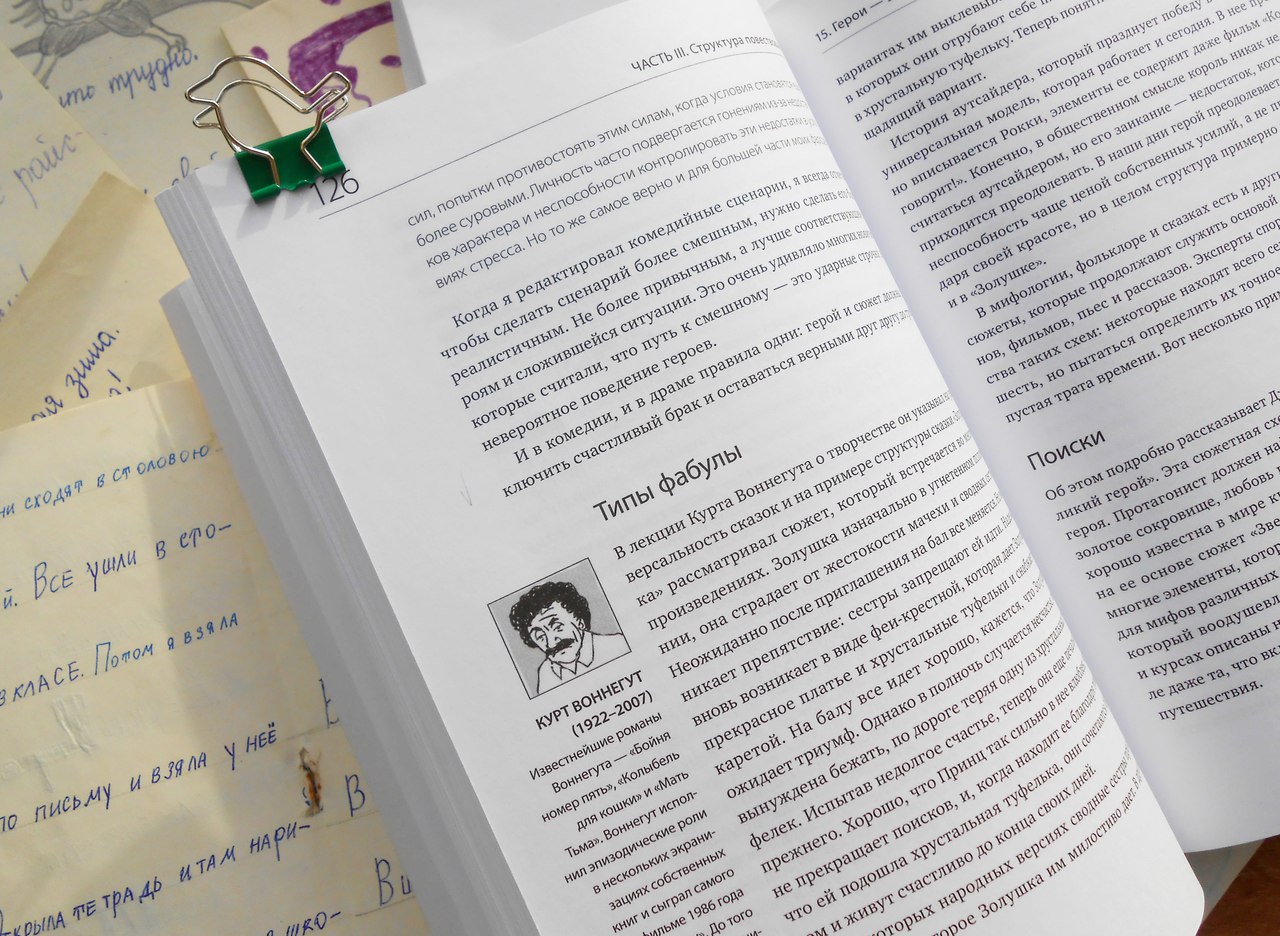 что трудно.
зима.
ни сходят в столовою
й. Все ушли в сто-
в класе. Потом я взяла
по письму и взяла у неё
ткрыла тетрадь и там нари-
В
Ви
126
ЧАСТЬ III. Структура
сил, попытки противостоять этим силам, когда условия становятся
более суровыми. Личность часто подвергается гонениям из-за
ков характера и неспособности контролировать эти недостатки в
виях стресса. Но то же самое верно и для большей части моих
Когда я редактировал комедийные сценарии, я всегда
чтобы сделать сценарий более смешным, нужно сделать его
реалистичным. Не более привычным, а лучше соответствующим
роям и сложившейся ситуации. Это очень удивляло многих
которые считали, что путь к смешному — это ударные
невероятное поведение героев.
И в комедии, и в драме правила одни: герой и сюжет
ключить счастливый брак и оставаться верными друг другу
Типы фабулы
В лекции Курта Воннегута о творчестве он указывал на
версальность сказок и на примере структуры сказки
ка» рассматривал сюжет, который встречается во
произведениях. Золушка изначально в угнетенном
нии, она страдает от жестокости мачехи и сводных
Неожиданно после приглашения на бал все меняется.
никает препятствие: сестры запрещают ей идти.
вновь возникает в виде феи-крестной, которая дает
прекрасное платье и хрустальные туфельки и
каретой. На балу все идет хорошо, кажется, что
ожидает триумф. Однако в полночь случается
вынуждена бежать, по дороге теряя одну из
фелек. Испытав недолгое счастье, теперь она еще
прежнего. Хорошо, что Принц так сильно в нее
не прекращает поисков, и, когда находит ее
что ей подошла хрустальная туфелька, они
ом и живут счастливо до конца своих дней.
которых народных версиях сводные сестры
торое Золушка им милостиво дает. В
КУРТ ВОННЕГУТ
(1922–2007)
Известнейшие романы
Воннегута — «Бойня
номер пять», «Колыбель
для кошки» и «Мать
Тьма». Воннегут испол-
нил эпизодические роли
в нескольких экрани-
зациях собственных
книг и сыграл самого
фильме 1986 года
. До того
15. Герои —
вариантах им выклевывают
в которых они отрубают себе
в хрустальную туфельку. Теперь
щадящий вариант.
История аутсайдера, который празднует победу в
универсальная модель, которая работает и сегодня. В нее
но вписывается Рокки, элементы ее содержит даже фильм
говорит!». Конечно, в общественном смысле король никак не
считаться аутсайдером, но его заикание — недостаток,
приходится преодолевать. В наши дни герой преодолевает
неспособность чаще ценой собственных усилий, а не
даря своей красоте, но в целом структура примерно
и в «Золушке».
В мифологии, фольклоре и сказках есть и другие
сюжеты, которые продолжают служить основой
нов, фильмов, пьес и рассказов. Эксперты
ства таких схем: некоторые находят всего
шесть, но пытаться определить их
пустая трата времени. Вот несколько
Поиски
Об этом подробно рассказывает
ликий герой». Эта сюжетная
героя. Протагонист должен
золотое сокровище, любовь
хорошо известна в мире
на ее основе сюжет
многие элементы,
для мифов различных
который
и курсах описаны
ле даже та, что
путешествия.